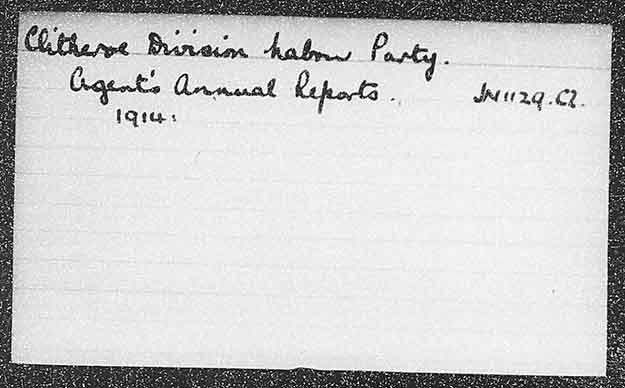 Clitheroe Division Labour Party.
Agent's Annual Reports. JN1129.C2.
1914.